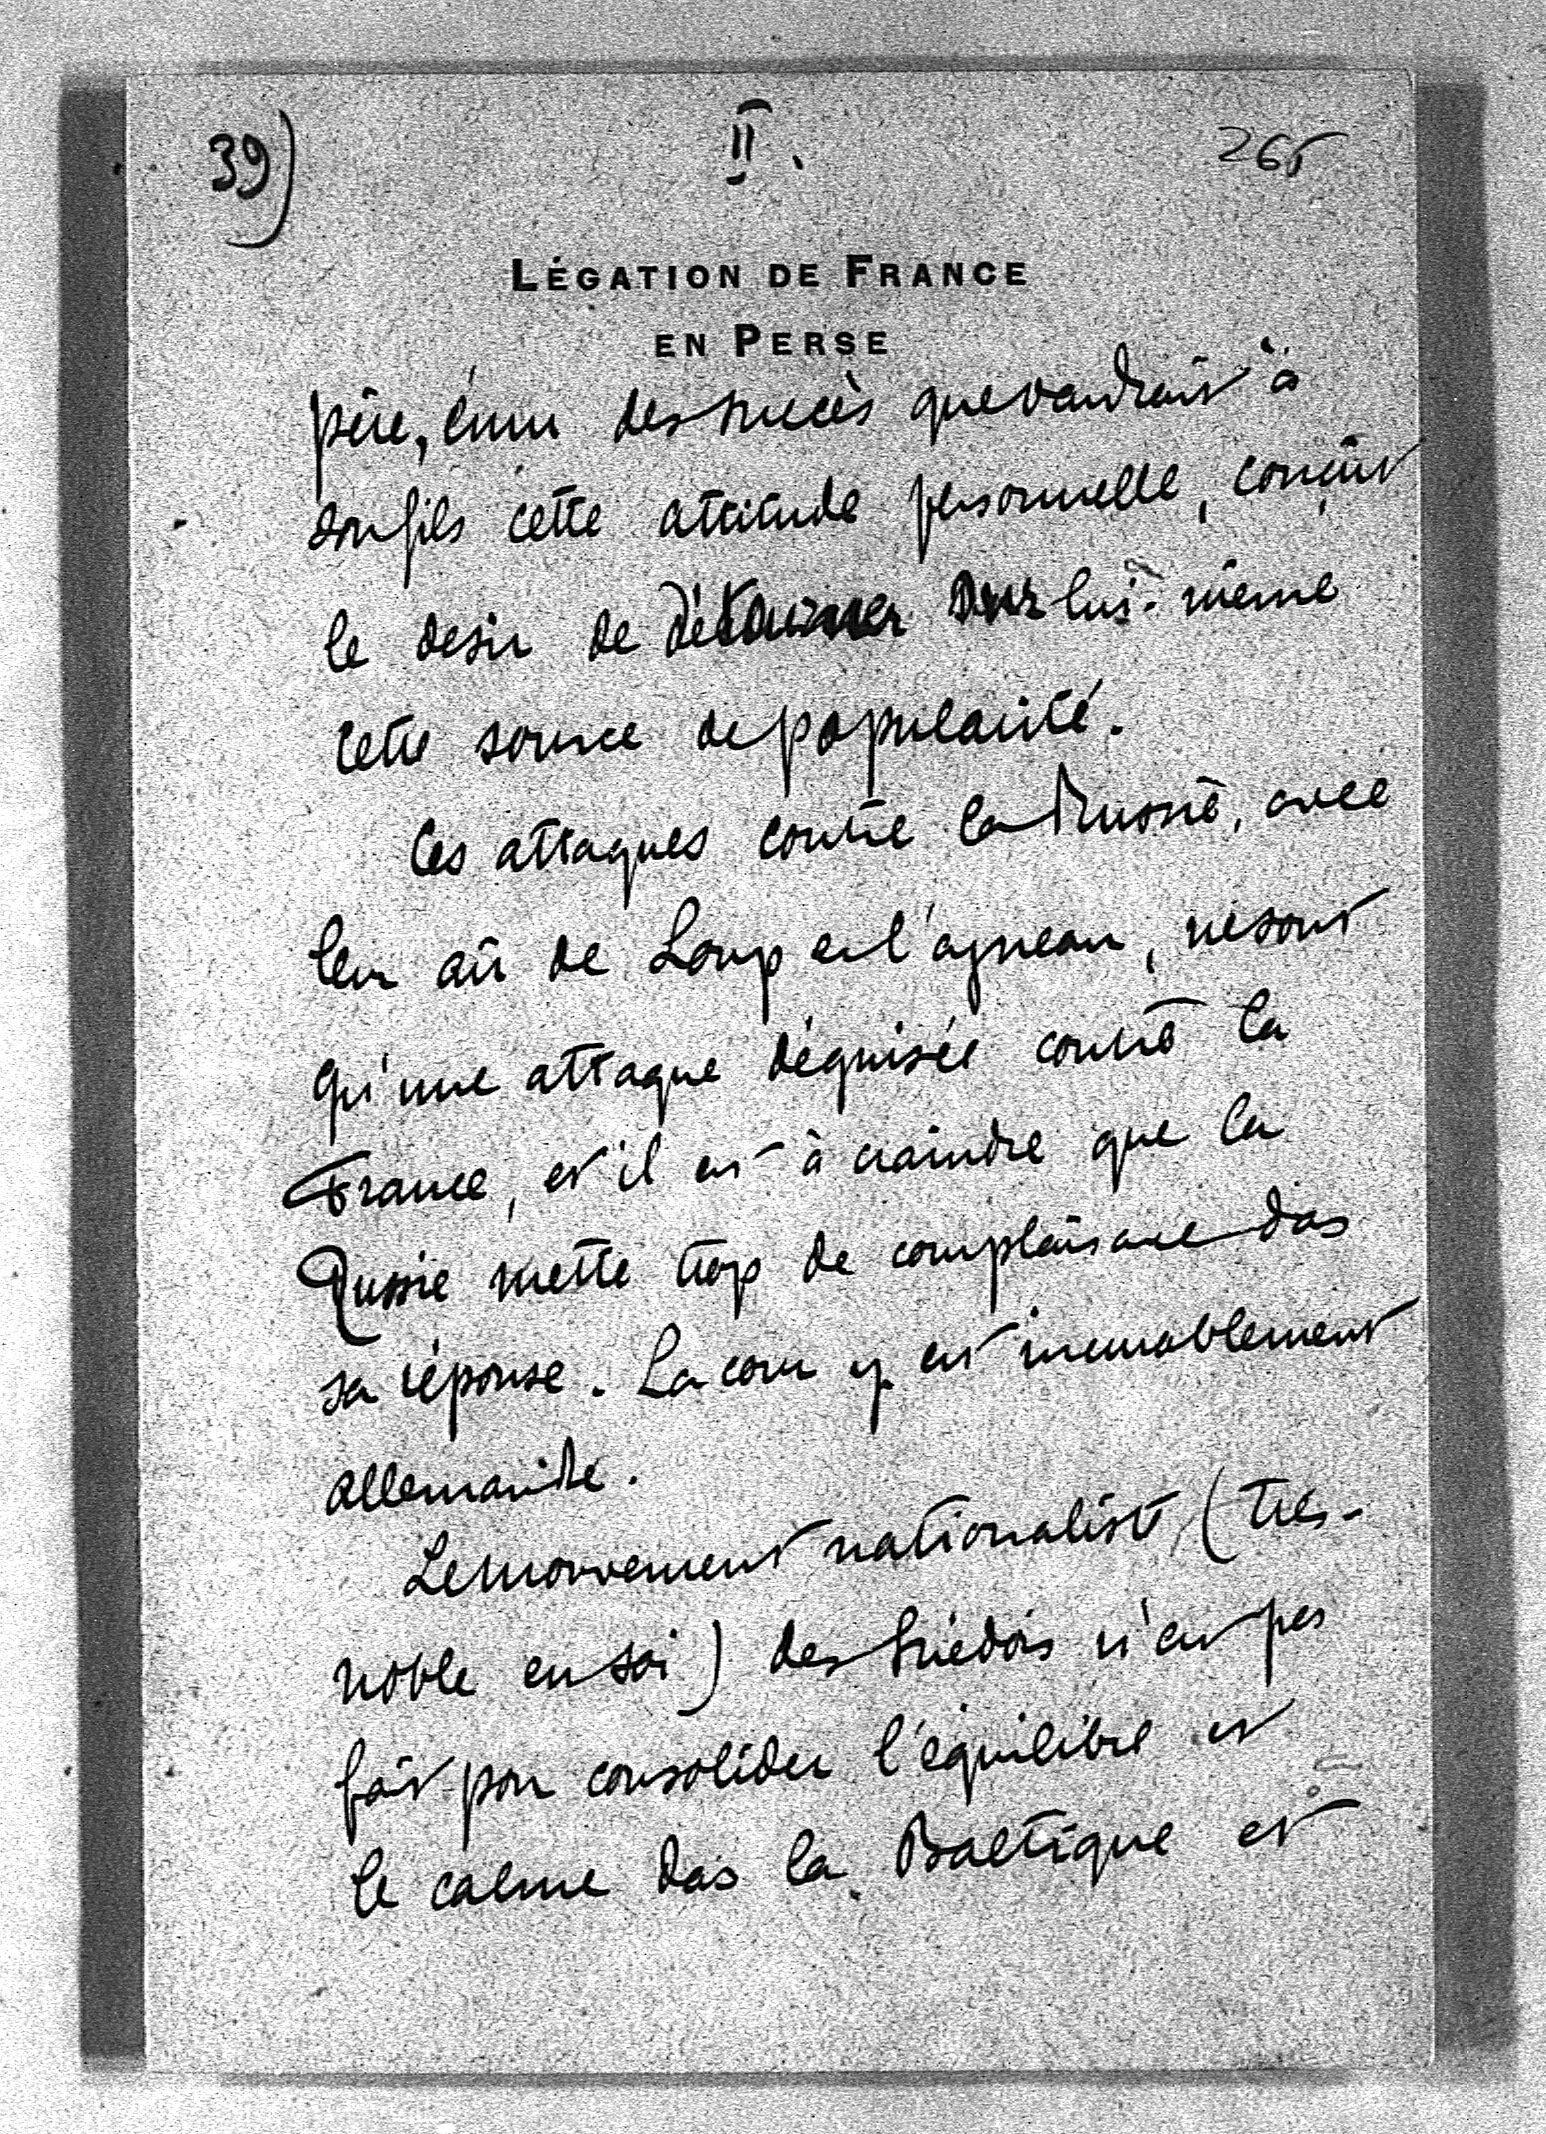 39)
II.
265
LÉGATION DE FRANCE
EN PERSE
père, ému des succès que vaudrait à
son fils cette attitude personnelle, conçût
le desir de détourner sur lui-même
cette source de popularité.
Ces attaques contre la Russie, avec
leur air de Loup et l'agneau, ne sont
qu'une attaque déguisée contre la
France, et il est à craindre que la
Russie mette trop de complaisance dans
sa réponse. La cour y est incurablement
allemande.
Le mouvement nationaliste (très-
noble en soi) des Suédois n'est pas
fait pour consolider l'équilibre et
le calme dans la Baltique et